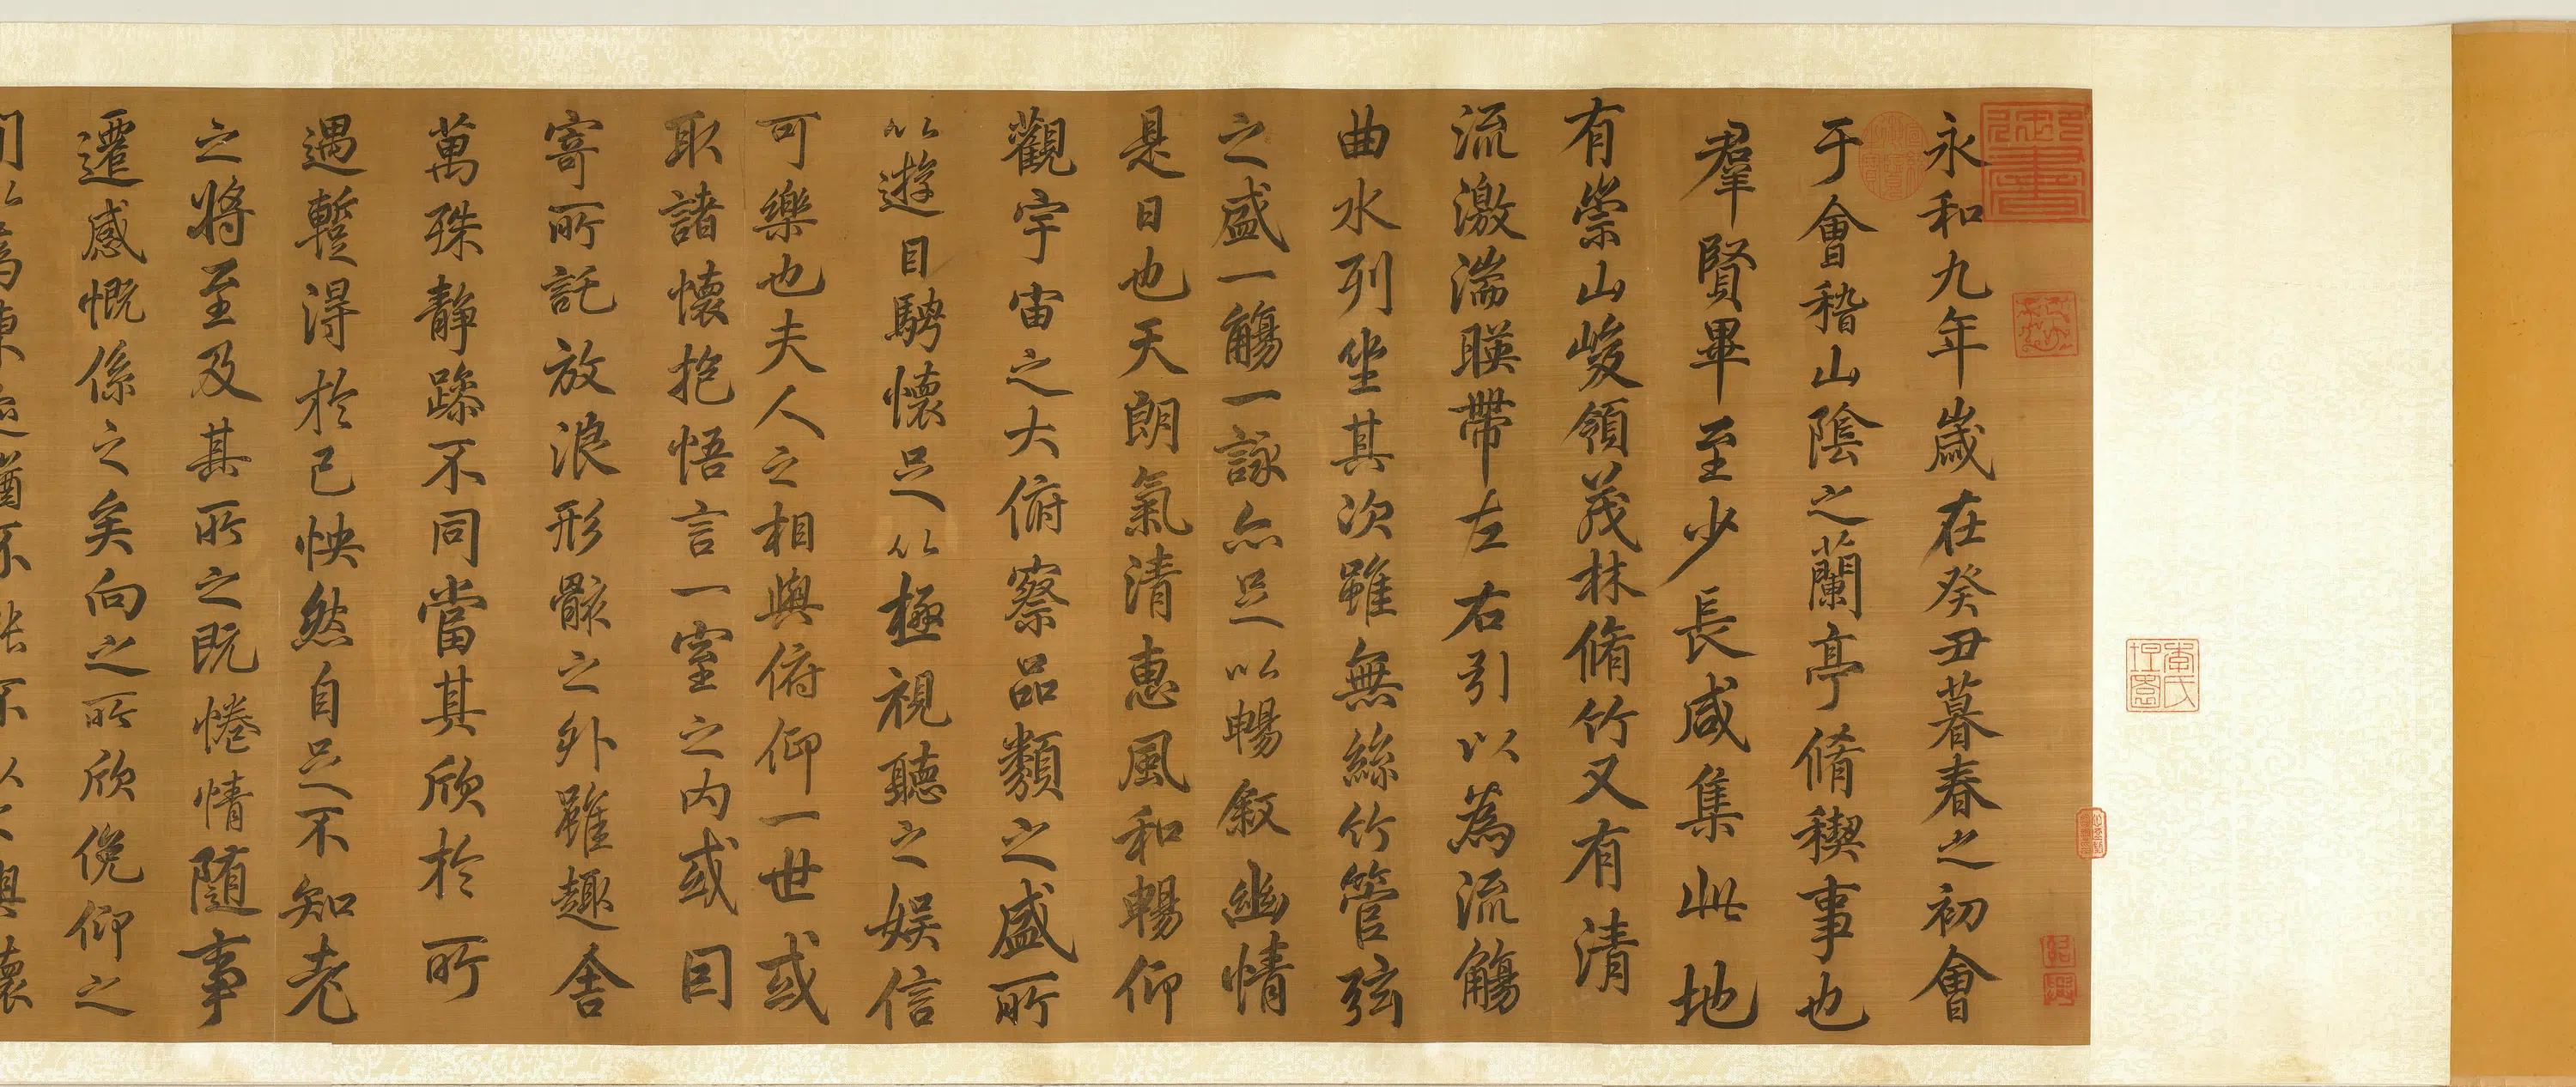 永和九年歲在癸丑暮春之初會
于會稽山陰之蘭亭脩稧事也
羣賢畢至少長咸集此地
有崇山峻領茂林脩竹又有清
流激湍暎帶左右引以為流觴
曲水列坐其次雖無絲竹管弦
之盛一觴一詠亦足以暢敘幽情
是日也天朗氣清惠風和暢仰
觀宇宙之大俯察品類之盛所
以遊目騁懷足以極視聽之娛信
可樂也夫人之相與俯仰一世或
取諸懷抱悟言一室之內或因
寄所託放浪形骸之外雖趣舍
萬殊靜躁不同當其欣於所
遇暫得於己怏然自足不知老
之將至及其所之既惓情隨事
遷感慨係之矣向之所欣俛仰之